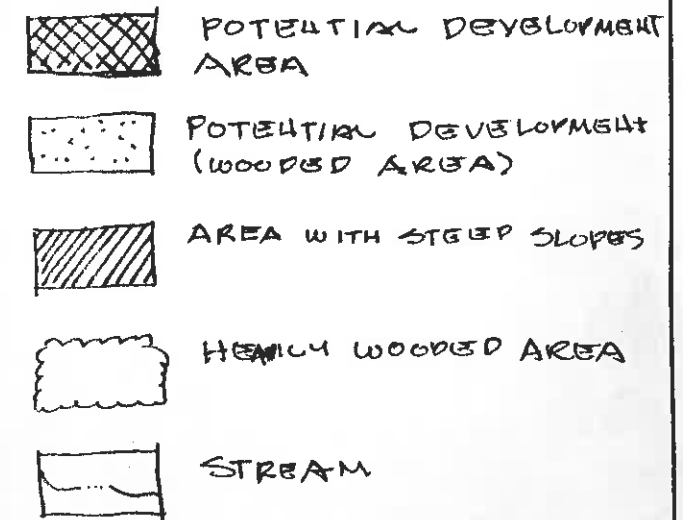 POTENTIAL DEVELOPMENT
AREA
POTENTIAL DEVELOPMENT
(WOODED AREA)
AREA WITH STEEP SLOPES
HEAVILY WOODED AREA
STREAM